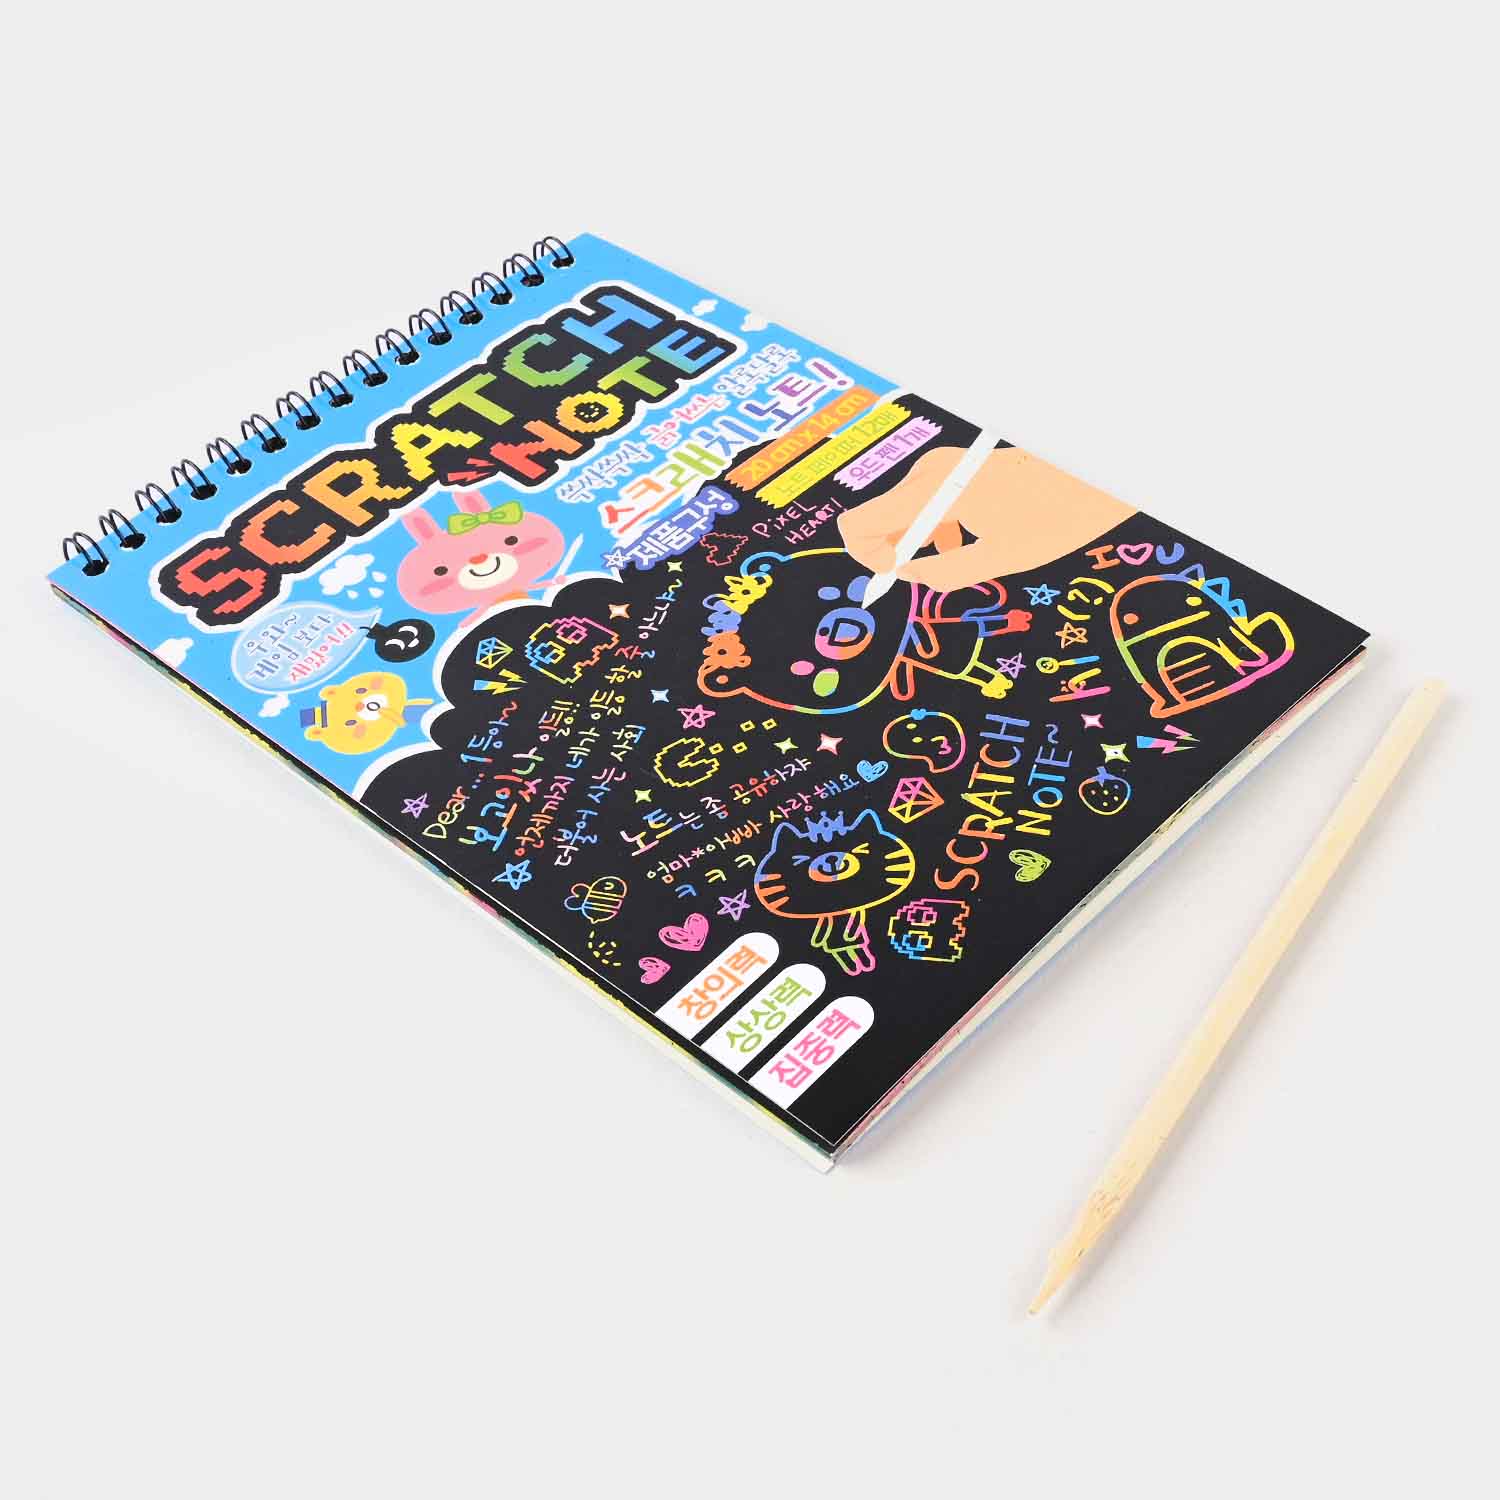 SCRATCH
NOTE
쓱싸쓱싹 긁어쓰는 알록달록
스크래치 노트!
제품구성
20 cm x 14 cm
노트 페이퍼 12매
우드 펜 1개
우와~
게임 보다
재밌어!!
PiXEL
HEART!
Dear... 1등아~
보고있나 이등!!
언제까지 네가 이등 할 줄 아느냐~
더불어 사는 사회
노트는 좀 공유하자
엄마*아빠빠 사랑해요
ㅋ ㅋ ㅋ ㅋ
(?)
SCRATCH
NOTE~
창의력
상상력
집중력